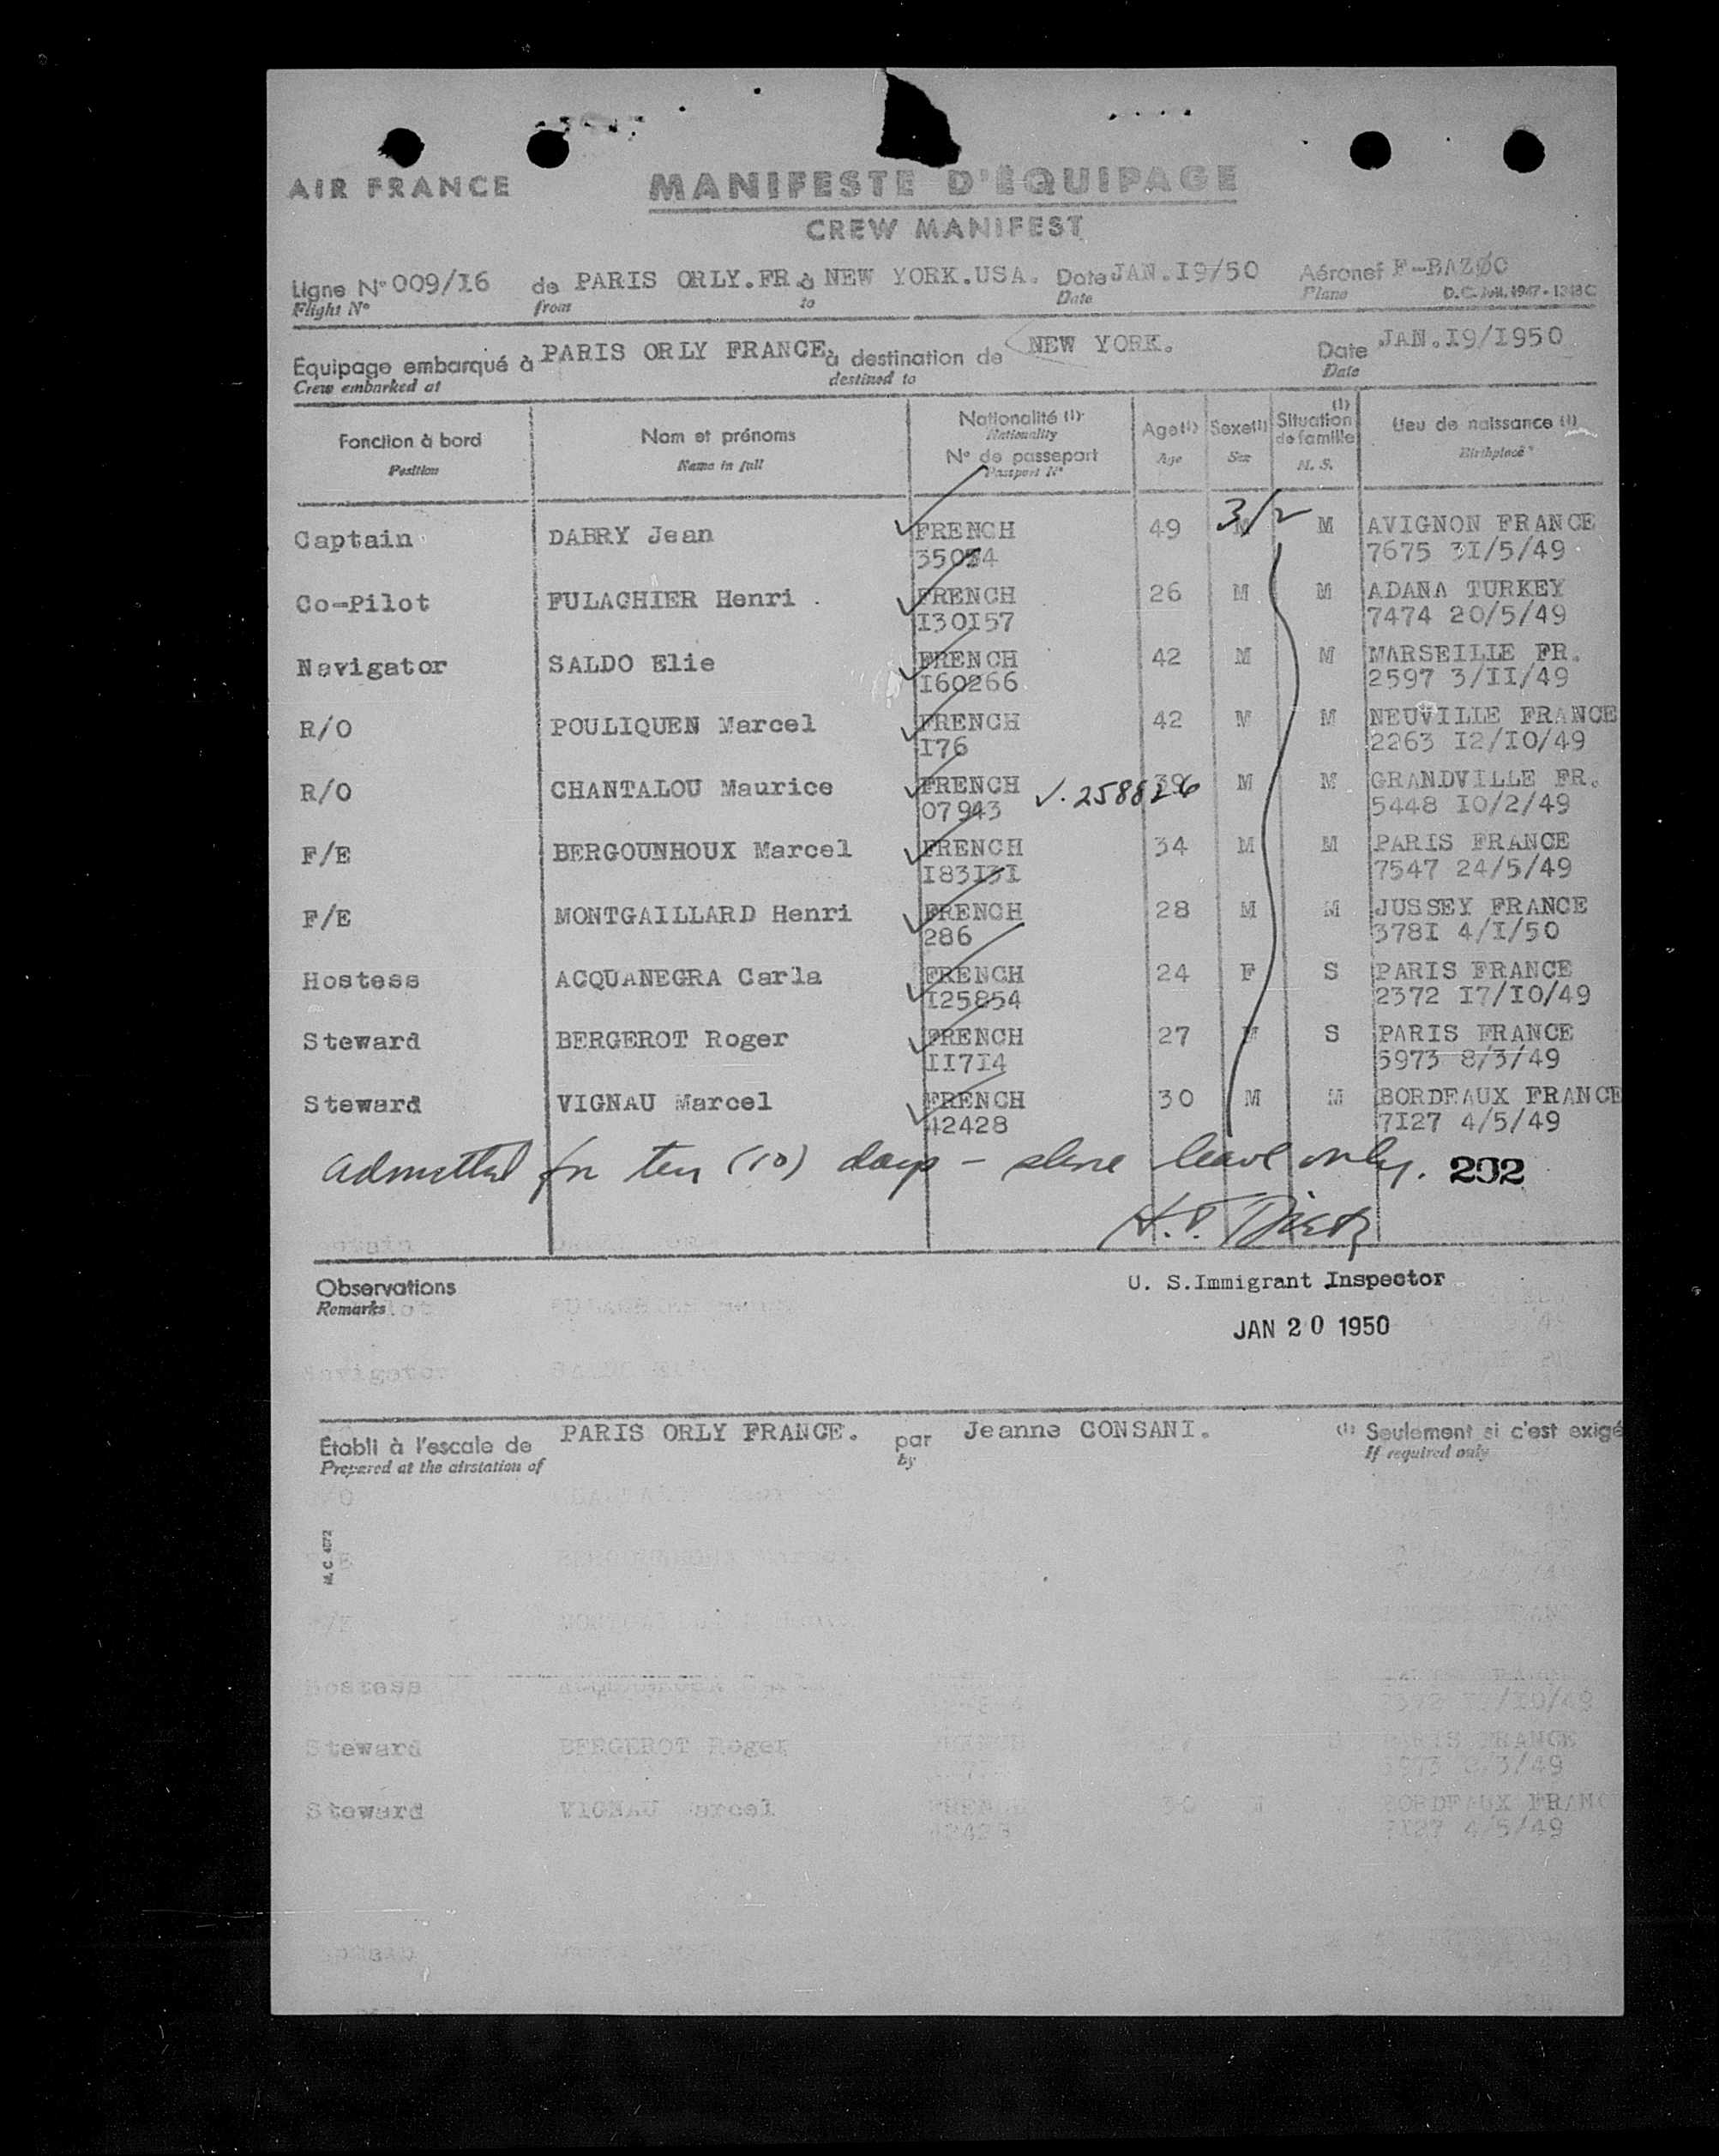 AIR FRANCE
MANIFESTE D'ÉQUIPAGE
CREW MANIFEST
Ligne N° 009/I6 de PARIS ORLY.FR à NEW YORK.USA. Date JAN.I9/50 Aéronef F-BAZØC
Flight N° from to Date Plane
Équipage embarqué à PARIS ORLY FRANCE à destination de NEW YORK. Date JAN.I9/I950
Crew embarked at destined to Date
Fonction à bord Nom et prénoms Nationalité (1) Age (1) Sexe (1) Situation de famille (1) Lieu de naissance (1)
Position Name in full Nationality Age Sex M. S. Birthplace
N° de passeport
Passport N°
3/2
Captain DABRY Jean FRENCH 49 M M AVIGNON FRANCE
7675 3I/5/49
Co-Pilot FULACHIER Henri FRENCH 26 M M ADANA TURKEY
I30I57 7474 20/5/49
Navigator SALDO Elie FRENCH 42 M M MARSEILLE FR.
I60266 2597 3/II/49
R/O POULIQUEN Marcel FRENCH 42 M M NEUVILLE FRANCE
I76 2263 I2/I0/49
R/O CHANTALOU Maurice FRENCH M M GRANDVILLE FR.
07943 5448 I0/2/49
F/E BERGOUNHOUX Marcel FRENCH 34 M M PARIS FRANCE
I83I3I 7547 24/5/49
F/E MONTGAILLARD Henri FRENCH 28 M M JUSSEY FRANCE
286 378I 4/I/50
Hostess ACQUANEGRA Carla FRENCH 24 F S PARIS FRANCE
I25854 2372 I7/I0/49
Steward BERGEROT Roger FRENCH 27 M S PARIS FRANCE
II7I4 5973 8/3/49
Steward VIGNAU Marcel FRENCH 30 M M BORDEAUX FRANCE
42428 7I27 4/5/49
Admitted for ten (10) days - shore leave only. 202
Observations
Remarks
U. S.Immigrant Inspector
JAN 20 1950
Établi à l'escale de PARIS ORLY FRANCE. par Jeanne CONSANI. (1) Seulement si c'est exigé
Prepared at the airstation of by If required only
M. C. 4572
Hostess
Steward BERGEROT Roger PARIS FRANCE
5973 8/3/49
Steward VIGNAU Marcel 30 BORDEAUX FRANC
7I27 4/5/49